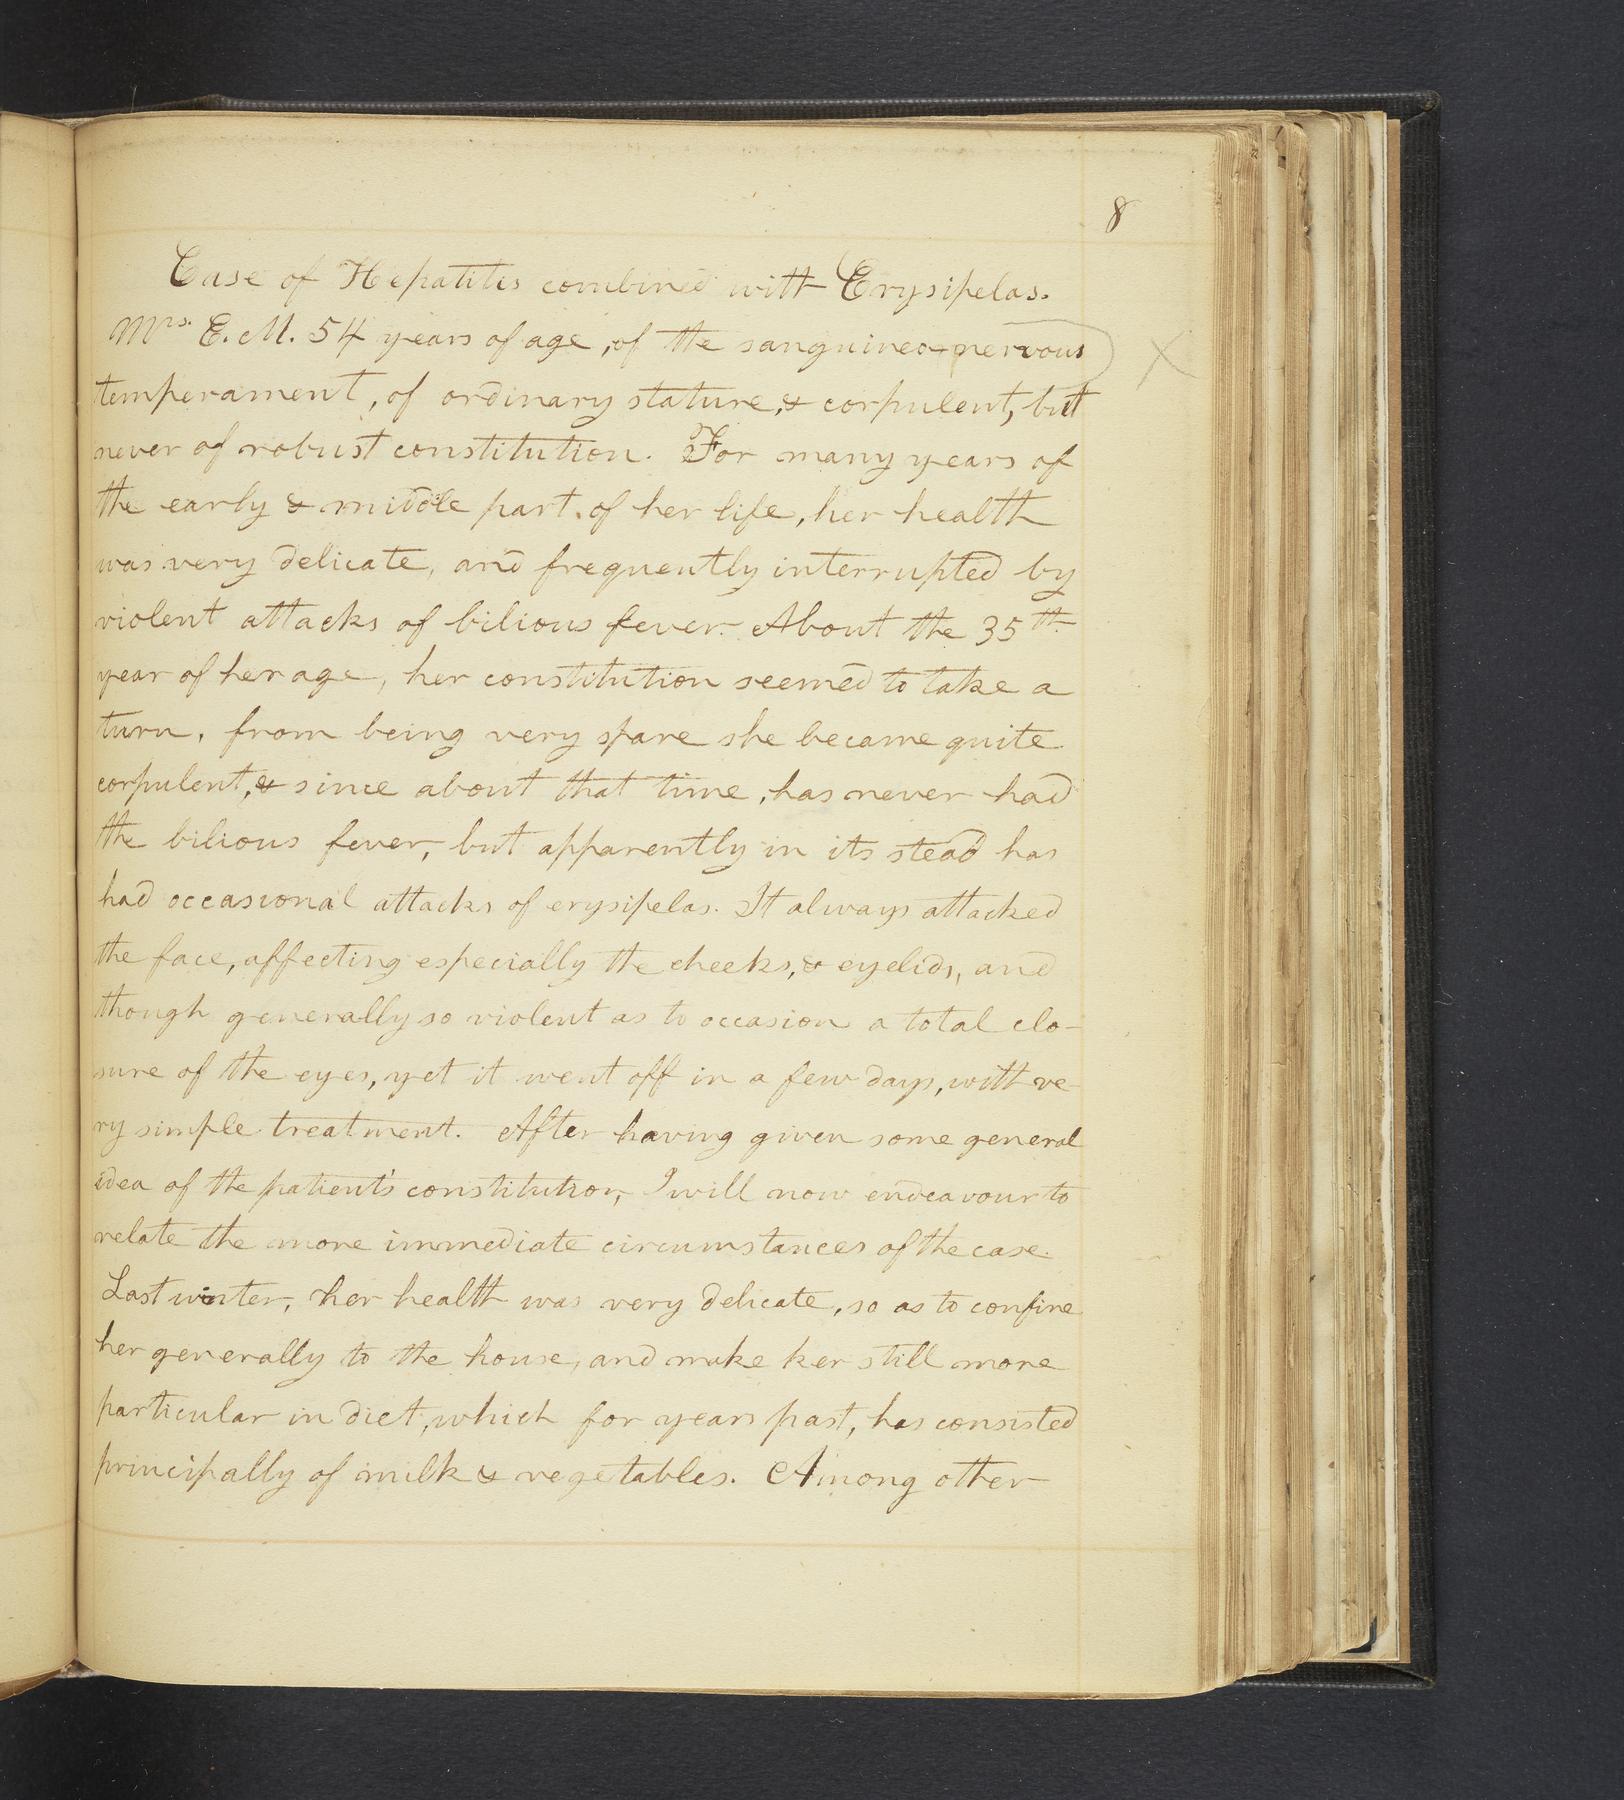 8
Case of Hepatitis combined with Erysipelas.
Mrs. E. M. 54 years of age, of the sanguineo-nervous
temperament, of ordinary stature, & corpulent, but
never of robust constitution. For many years of
the early & middle part of her life, her health
was very delicate, and frequently interrupted by
violent attacks of bilious fever. About the 35th
year of her age, her constitution seemed to take a
turn, from being very spare she became quite
corpulent, & since about that time, has never had
the bilious fever, but apparently in its stead has
had occasional attacks of erysipelas. It always attacked
the face, affecting especially the cheeks, & eyelids, and
though generally so violent as to occasion a total clo-
sure of the eyes, yet it went off in a few days, with ve-
ry simple treatment. After having given some general
idea of the patient's constitution, I will now endeavour to
relate the more immediate circumstances of the case.
Last winter, her health was very delicate, so as to confine
her generally to the house, and make her still more
particular in diet, which for years past, has consisted
principally of milk & vegetables. Among other